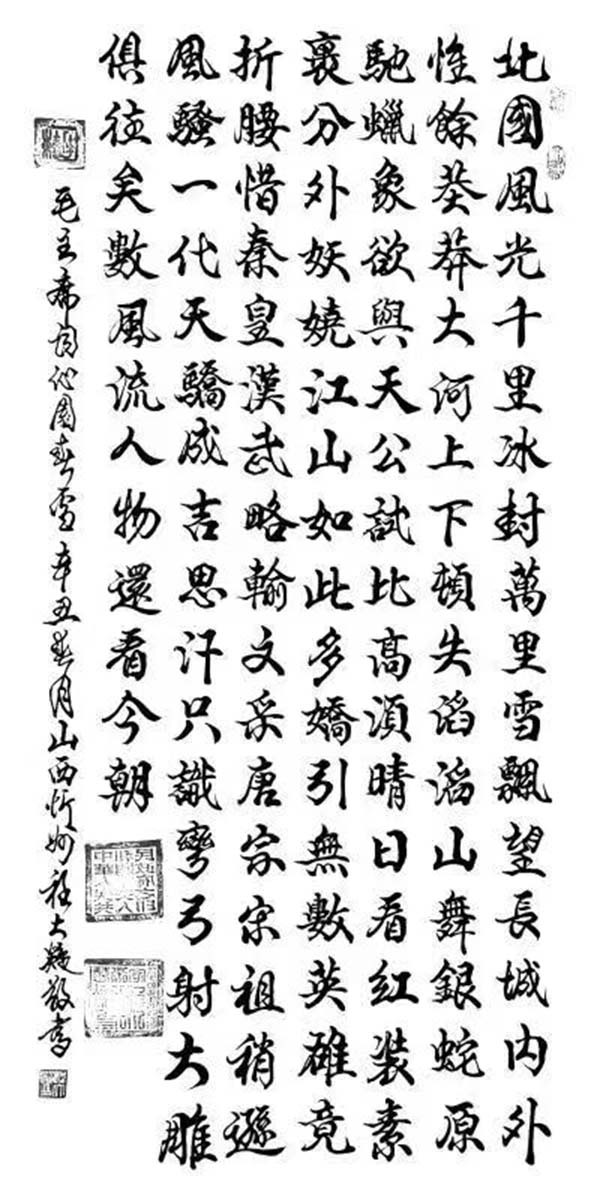 北國風光千里冰封萬里雪飄望長城内外
惟餘莽莽大河上下頓失滔滔山舞銀蛇原
馳蠟象欲與天公試比高須晴日看紅裝素
裹分外妖嬈江山如此多嬌引無數英雄竞
折腰惜秦皇漢武略輸文采唐宗宋祖稍遜
風騷一代天驕成吉思汗只識彎弓射大雕
俱往矣數風流人物還看今朝
毛主席詞沁園春雪辛丑春月山西忻州程大敬書